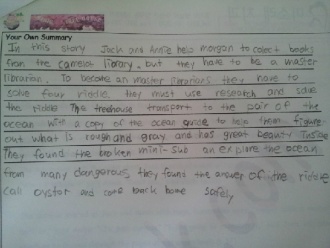 Your Own Summary
In this story Jack and Annie help morgan to colect books
from the camelot library. but they have to be a master
librarian. To become an master librarians they have to
solve four riddle. they must use research and solve
the riddle The treehouse transport to the pair of the
ocean with a copy of the ocean guide to help them figure
out what is rough and gray and has great beauty inside
They found the broken mini-sub an explore the ocean
from many dangerous they found the answer of the riddle
call oyster and come back home safely